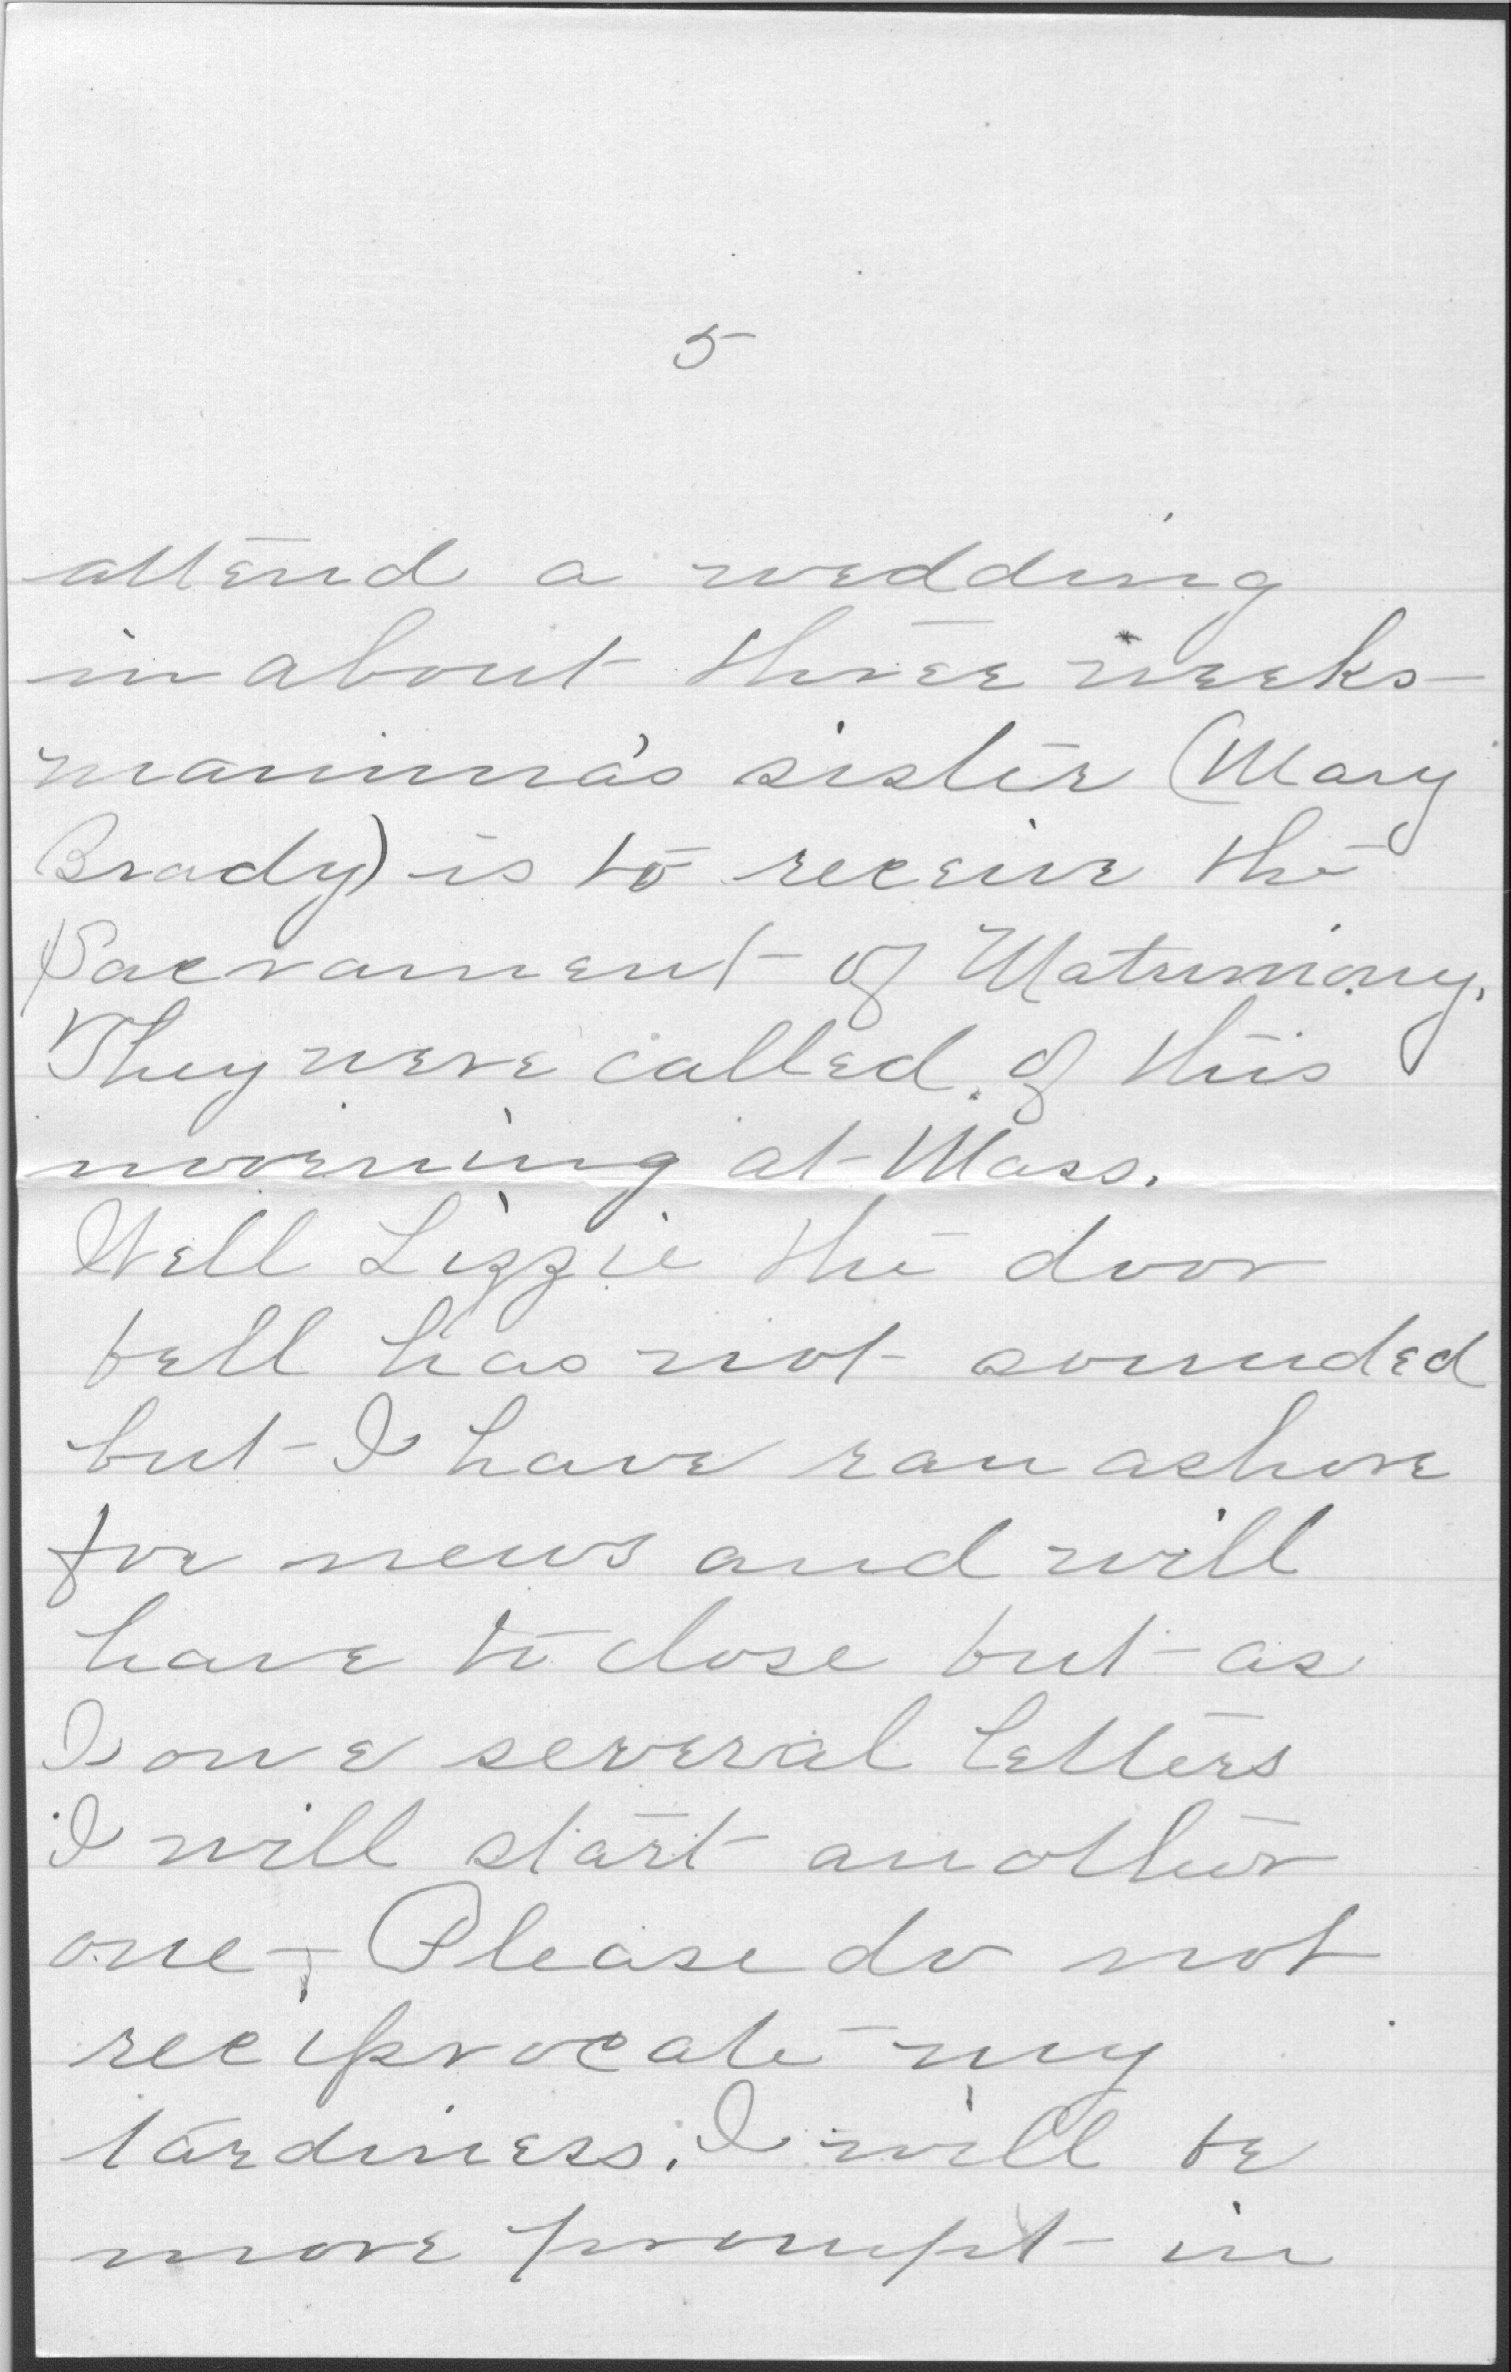 5
attend a wedding
in about three weeks
mamma's sister (Mary
Brady) is to receive the
Sacrament of Matrimony.
They were called of this
morening at Mass.
Well Lizzie the door
bell has not sounded
but I have ran ashore
for news and will
have to close but as
I owe several letters
I will start another
one - Please do not
reciprocate my
tardiness. I will be
more prompt in